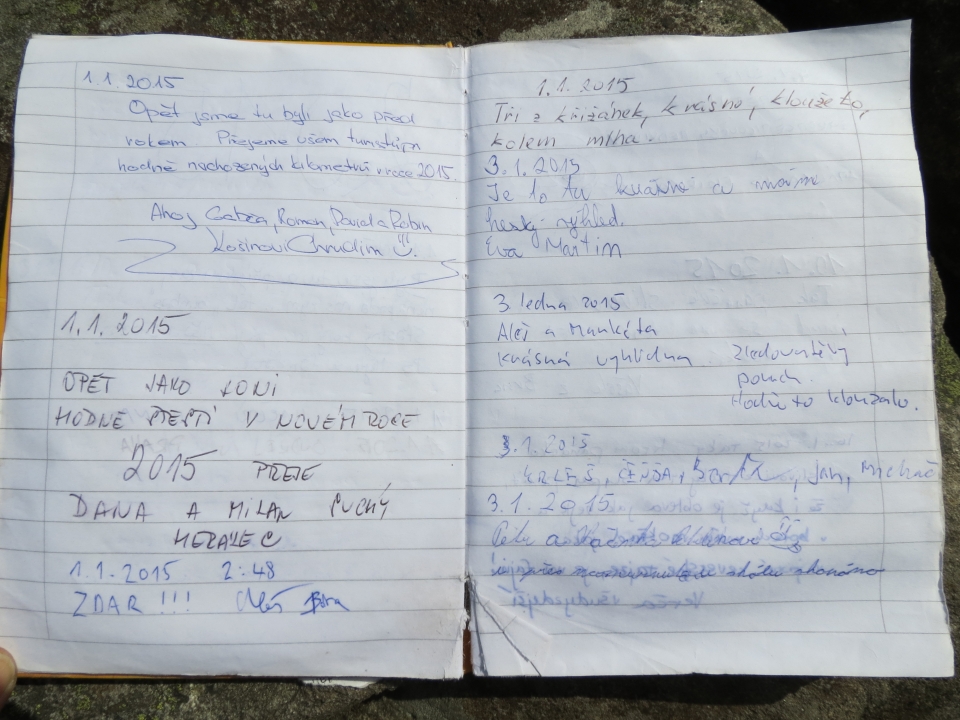 1.1.2015
Opět jsme tu byli jako před
rokem Přejeme všem turistům
hodně nachozených kilometrů v roce 2015.
Ahoj Gabča, Roman, David a Robin
Košinovi Chrudim
1.1.2015
OPĚT JAKO LONI
HODNĚ ŠTĚSTÍ V NOVÉM ROCE
2015 PŘEJE
DANA A MILAN SUCHÝ
HERALEC
1.1.2015 2:48
ZDAR !!! Aleš
1.1.2015
Tři z křižánek, krásně, klouzalo,
kolem mlha.
3.1.2015
Je to tu krásné a
hezký výhled.
Eva Martin
3 ledna 2015
Aleš a Markéta
krásná vyhlídka Zledovatělý
povrch.
Hodně to klouzalo.
3.1.2015
ČEŇDA, Jan, Michal
3.1.2015
a